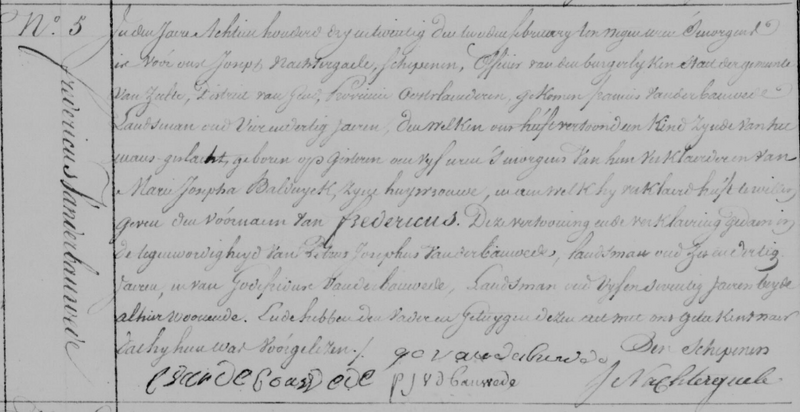 N.° 5
Fredericus Vanderbauwede
In den Jaere Achtien honderd dry en twintig den tweeden february ten negen uren s'morgens
is voór ons Joseph Nachtergaele, Schepenen, Officier van den burgerlyken Staet der gemeente
van, District van, Provincie Oostvlaenderen, gekomen francies Vanderbauwede
Landsman oud Vier en dertig Jaeren, den welken ons heéft vertoond een Kind zynde van het
mans geslacht, geboren op gisteren om vyf uren s'morgens van hem verklaerder en van
Marie Josepha Balduyck, zyne huysvrouwe, en aen welk hy verklaerd heéft te willen
geven den Voórnaem van fredericus. Deze vertooning ende verklaering gedaen in
de tegenwoórdigheyd van Petrus Josephus Vanderbauwede, landsman oud en dertig
Jaeren, en van Godefridus Vanderbauwede, Landsman oud Vyf en seventig Jaeren beyde
alhier woonende. Ende hebben den Vader en Getuygen dezen act met ons geteekent naer
dat hy hun was voórgelezen./.
go vanderbauwede
Den Schepenen
p j v d bauwede
J Nachtergaele